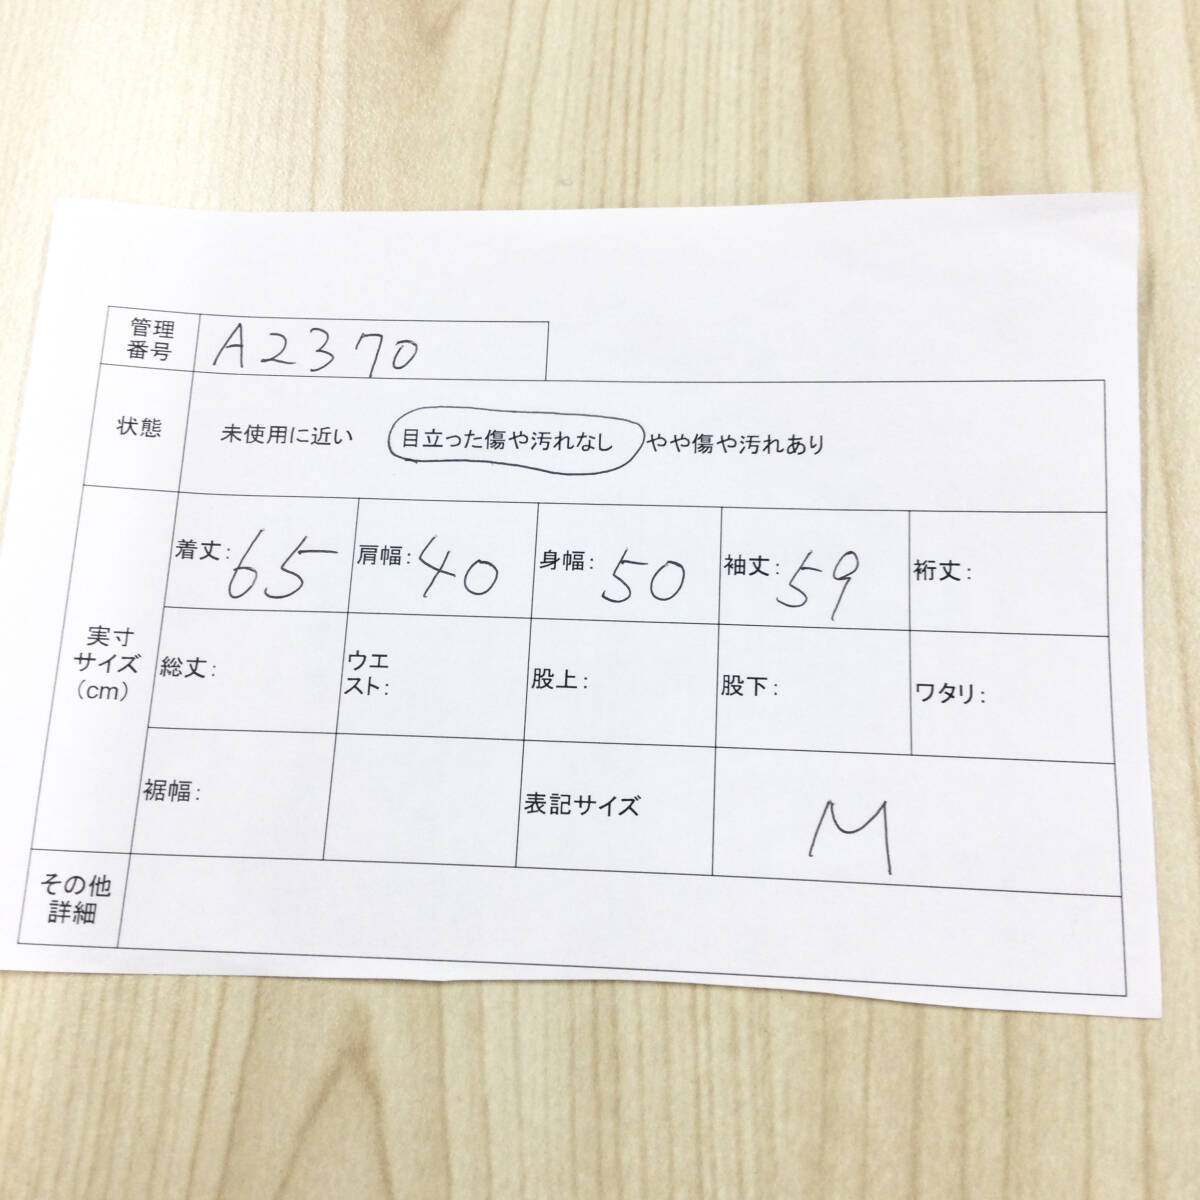 管理
番号
A2370
状態
未使用に近い 目立った傷や汚れなし やや傷や汚れあり
実寸
サイズ
(cm)
着丈: 65 肩幅: 40 身幅: 50 袖丈: 59 裄丈:
総丈: ウエ
スト: 股上: 股下: ワタリ:
裾幅: 表記サイズ M
その他
詳細